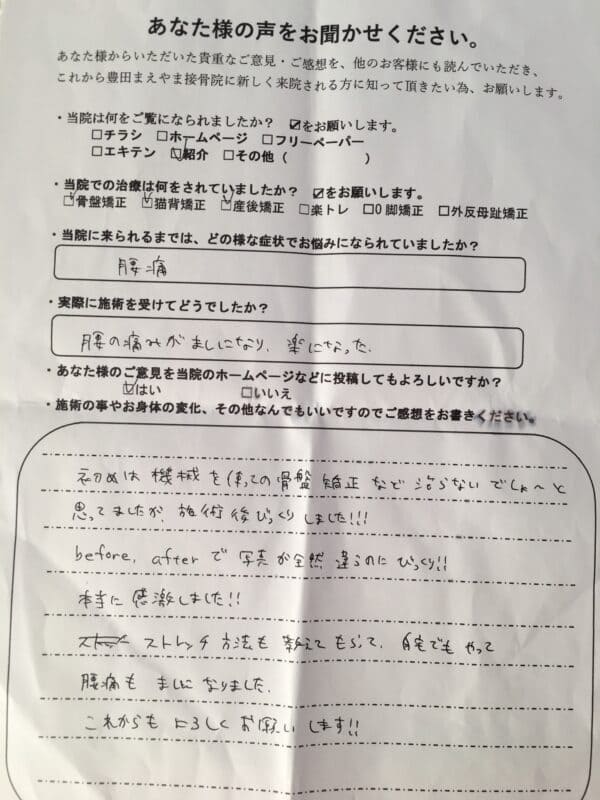 あなた様の声をお聞かせください。
あなた様からいただいた貴重なご意見・ご感想を、他のお客様にも読んでいただき、
これから豊田まえやま接骨院に新しく来院される方に知って頂きたい為、お願いします。
・当院は何をご覧になられましたか？ ☑をお願いします。
□チラシ □ホームページ □フリーペーパー
□エキテン ☑紹介 □その他（ ）
・当院での治療は何をされていましたか？ ☑をお願いします。
☑骨盤矯正 ☑猫背矯正 ☑産後矯正 □楽トレ □O脚矯正 □外反母趾矯正
・当院に来られるまでは、どの様な症状でお悩みになられていましたか？
腰痛
・実際に施術を受けてどうでしたか？
腰の痛みがましになり、楽になった.
・あなた様のご意見を当院のホームページなどに投稿してもよろしいですか？
☑はい □いいえ
・施術の事やお身体の変化、その他なんでもいいですのでご感想をお書きください。
初めは機械を使っての骨盤矯正など治らないでしょ〜と
思ってましたが、施術後びっくりしました!!!
before, afterで写真が全然違うのにびっくり!!
本当に感激しました!!
ストレッチ方法も教えてもらって、自宅でもやって
腰痛もましになりました.
これからもよろしくお願いします!!